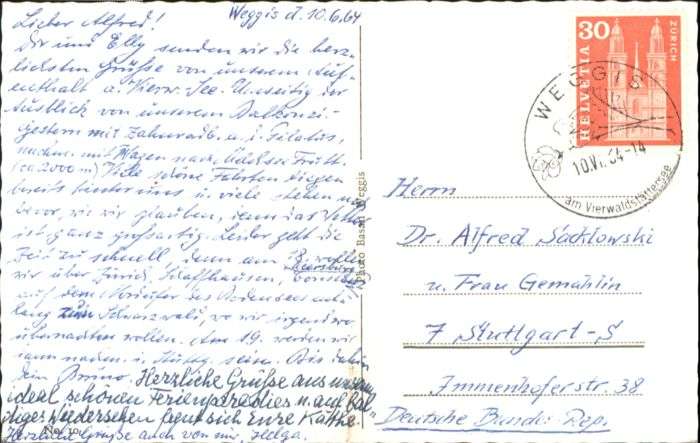 Weggis d. 10.6.64
Lieber Alfred!
Dir und Elly senden wir die herz-
lichsten Grüße von unserem Auf-
enthalt a. Vierw. See. Umseitig der
Ausblick von unserem Balkonzi-
gestern mit Zahnradb. a. d. Pilatus,
nachm. mit Wagen nach Frutt
(ca 2000 m) Viele schöne Fahrten liegen
bereits hinter uns u. viele stehen noch
bevor, wie wir glauben, denn das
ist ganz großartig. Leider geht die
Zeit zu schnell, denn am 18. wollen
wir über Zürich, Schaffhausen,
Meersburg
auf dem des Bodensees ent-
lang zum Schwarzwald, wo wir irgendwo
übernachten wollen. Am 19. werden wir
dann nachm. i. Stuttg. sein. Bis dahin
Dein Bruno. Herzliche Grüße aus unserm
ideal schönen Ferienparadies u. auf bal-
diges Wiedersehen freut sich Eure Käthe.
Herzliche Grüße auch von mir, Helga.
No. 10
Photo Basel Weggis
30
HELVETIA
ZÜRICH
WEGGIS
10.VI.64-14
am Vierwaldstättersee
Herrn
Dr. Alfred Sadlowski
u. Frau Gemahlin
7 Stuttgart-S
Immenhoferstr. 38
Deutsche Bundes Rep.